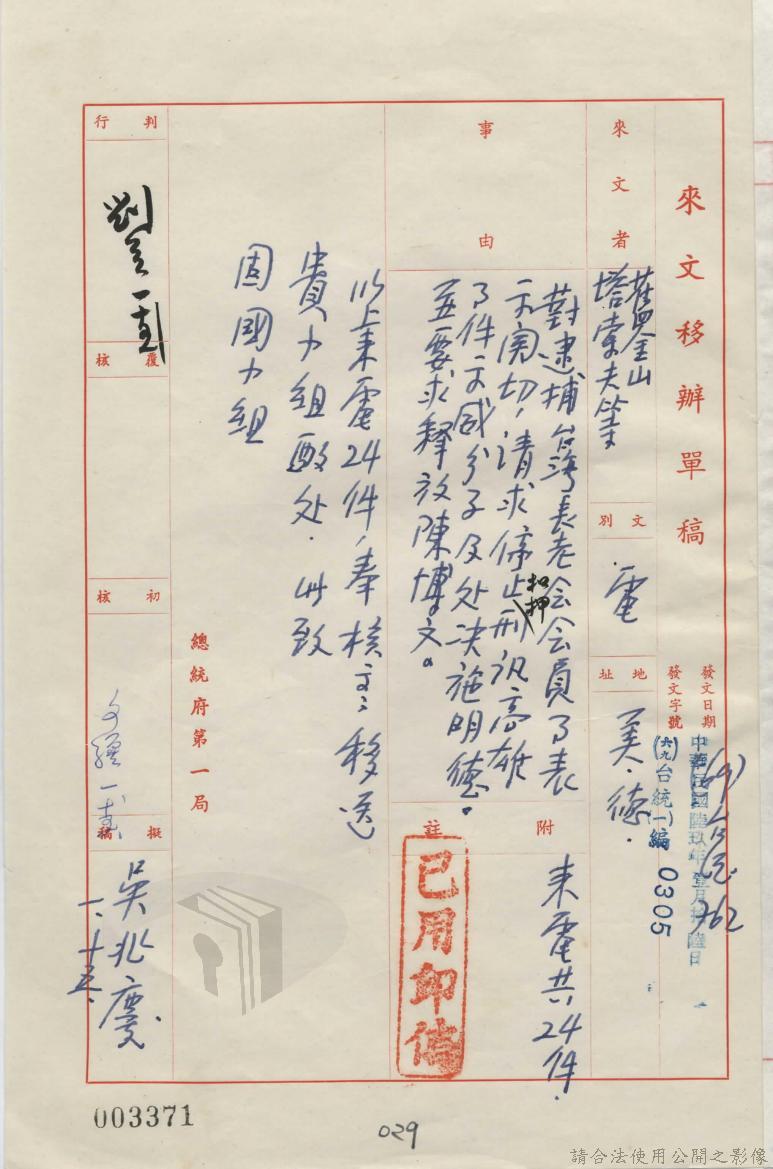 來文移辦單稿
發文日期
發文字號
中華民國陸玖年壹月拾陸日
(六九)台統(一)編 0305
來文者
舊金山
塔索夫等
文別
電
地址
美.德.
事由
對逮捕台灣長老会会員了表
示関切,請求停止扣押刑訊高雄
了件示威分子及处决施明德。
並要求釋放陳博文。
附註
來電共24件.
已用印信
以上來電24件,奉核交移送
貴力組酌处.此致
固國力組
總統府第一局
判行
覆核
初核
擬稿
吳兆慶
一.十五.
003371
029
請合法使用公開之影像